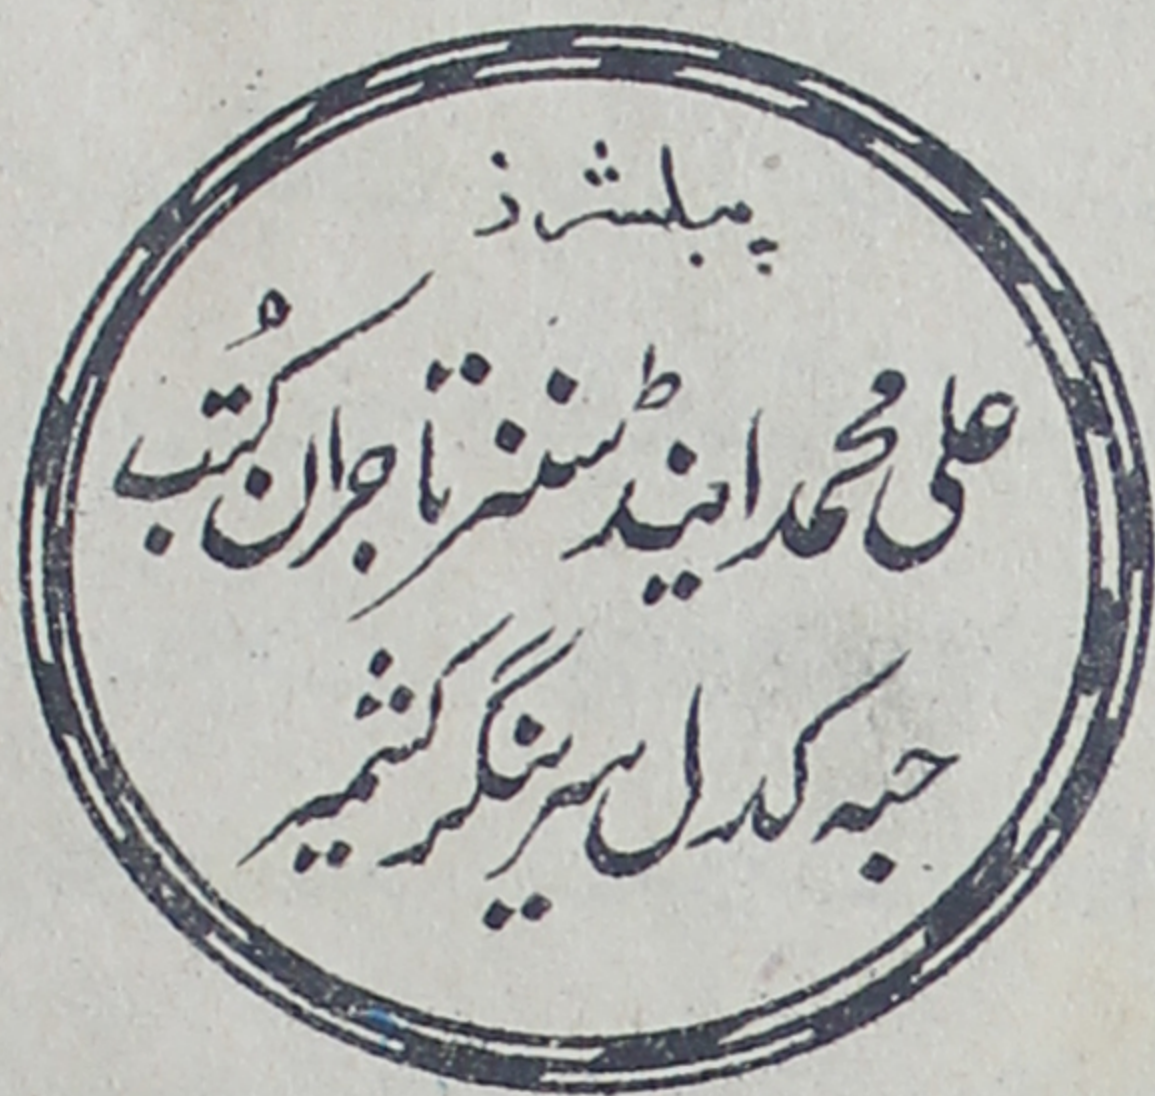 پبلشرز
علی محمد اینڈ سنز تاجران کُتب
حبہ کدل سرینگر کشمیر